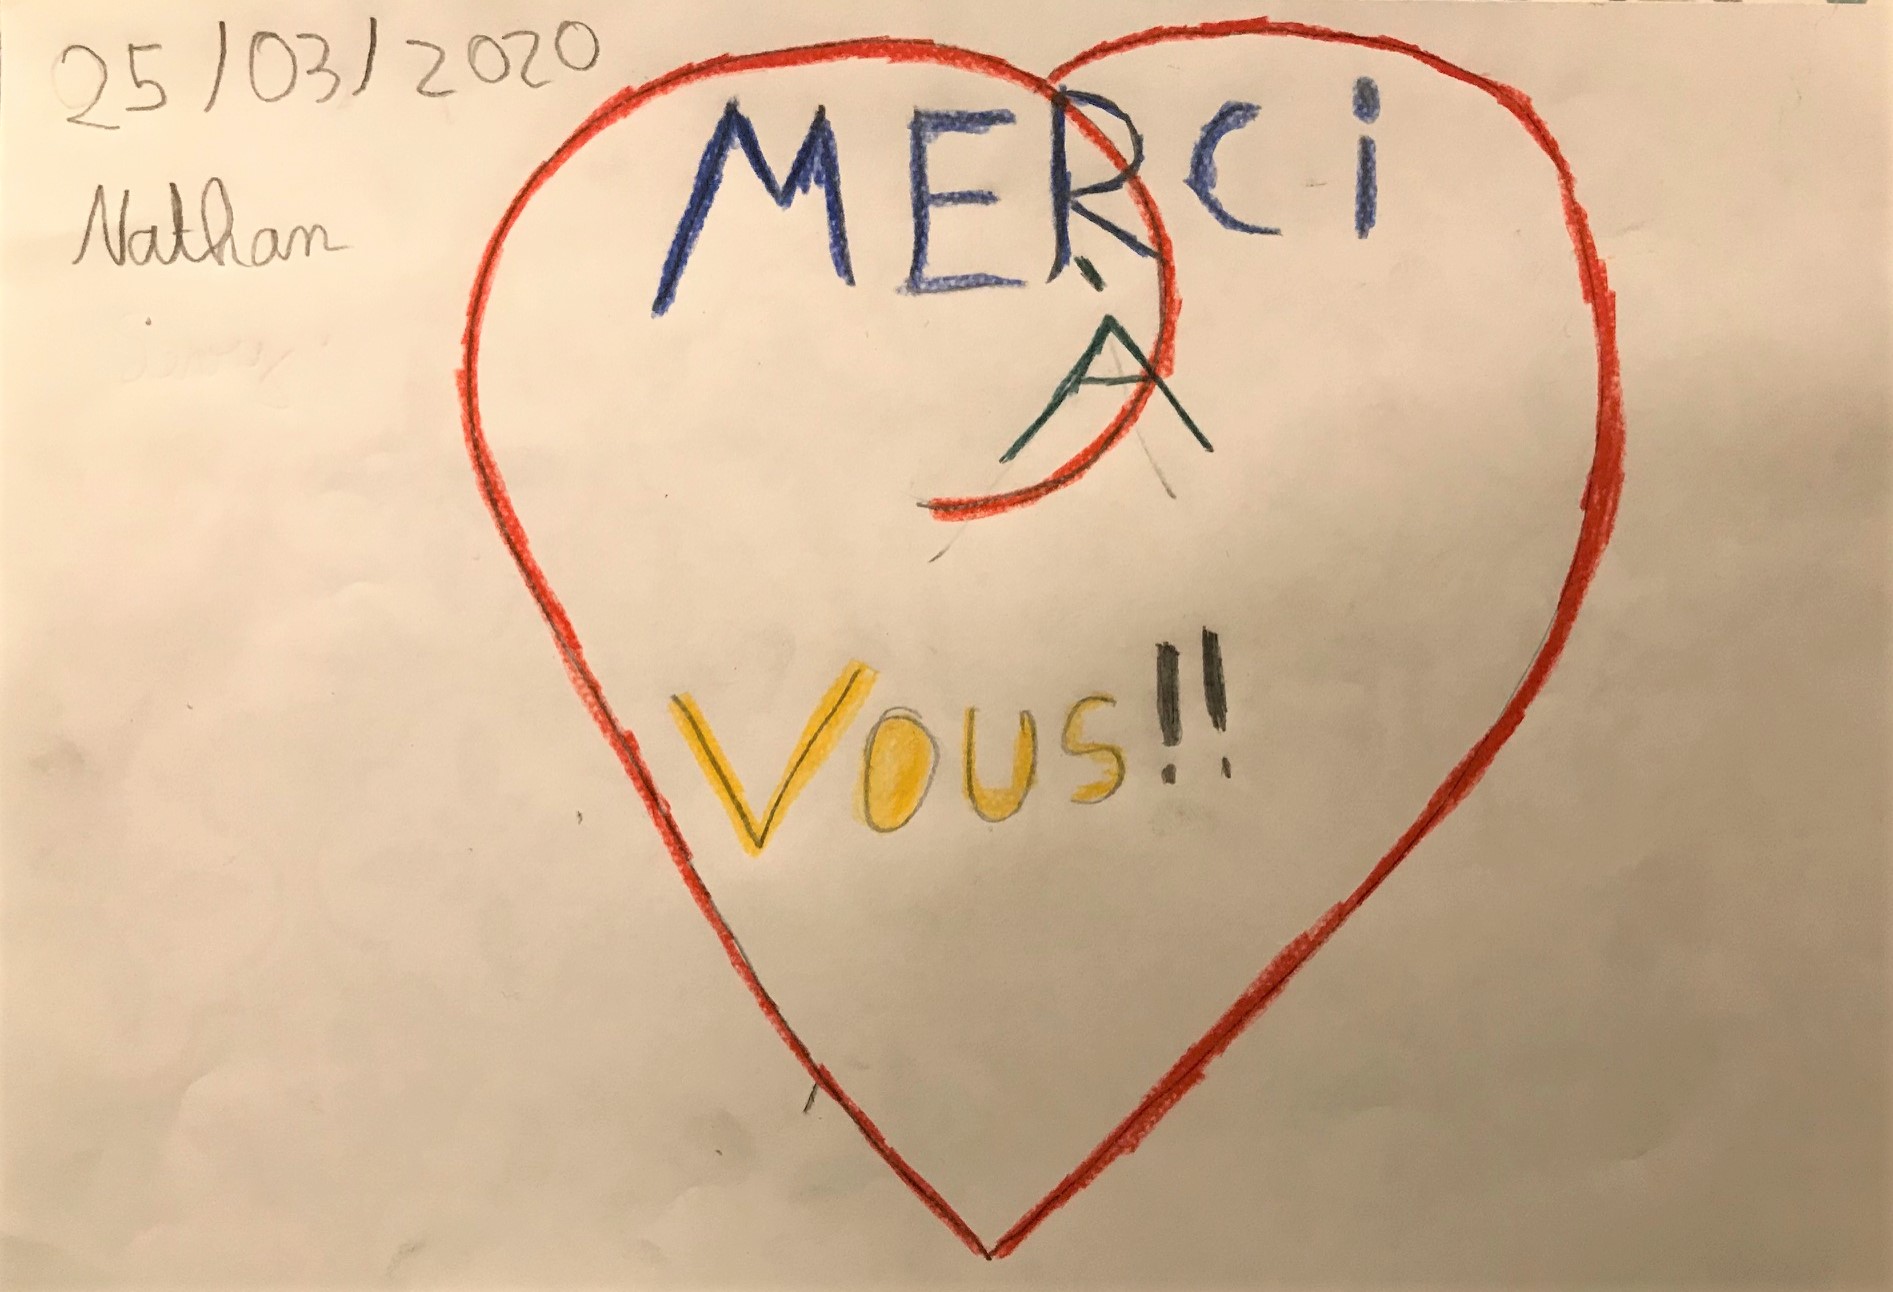 25/03/2020
Nathan
MERCi
À
Vous!!